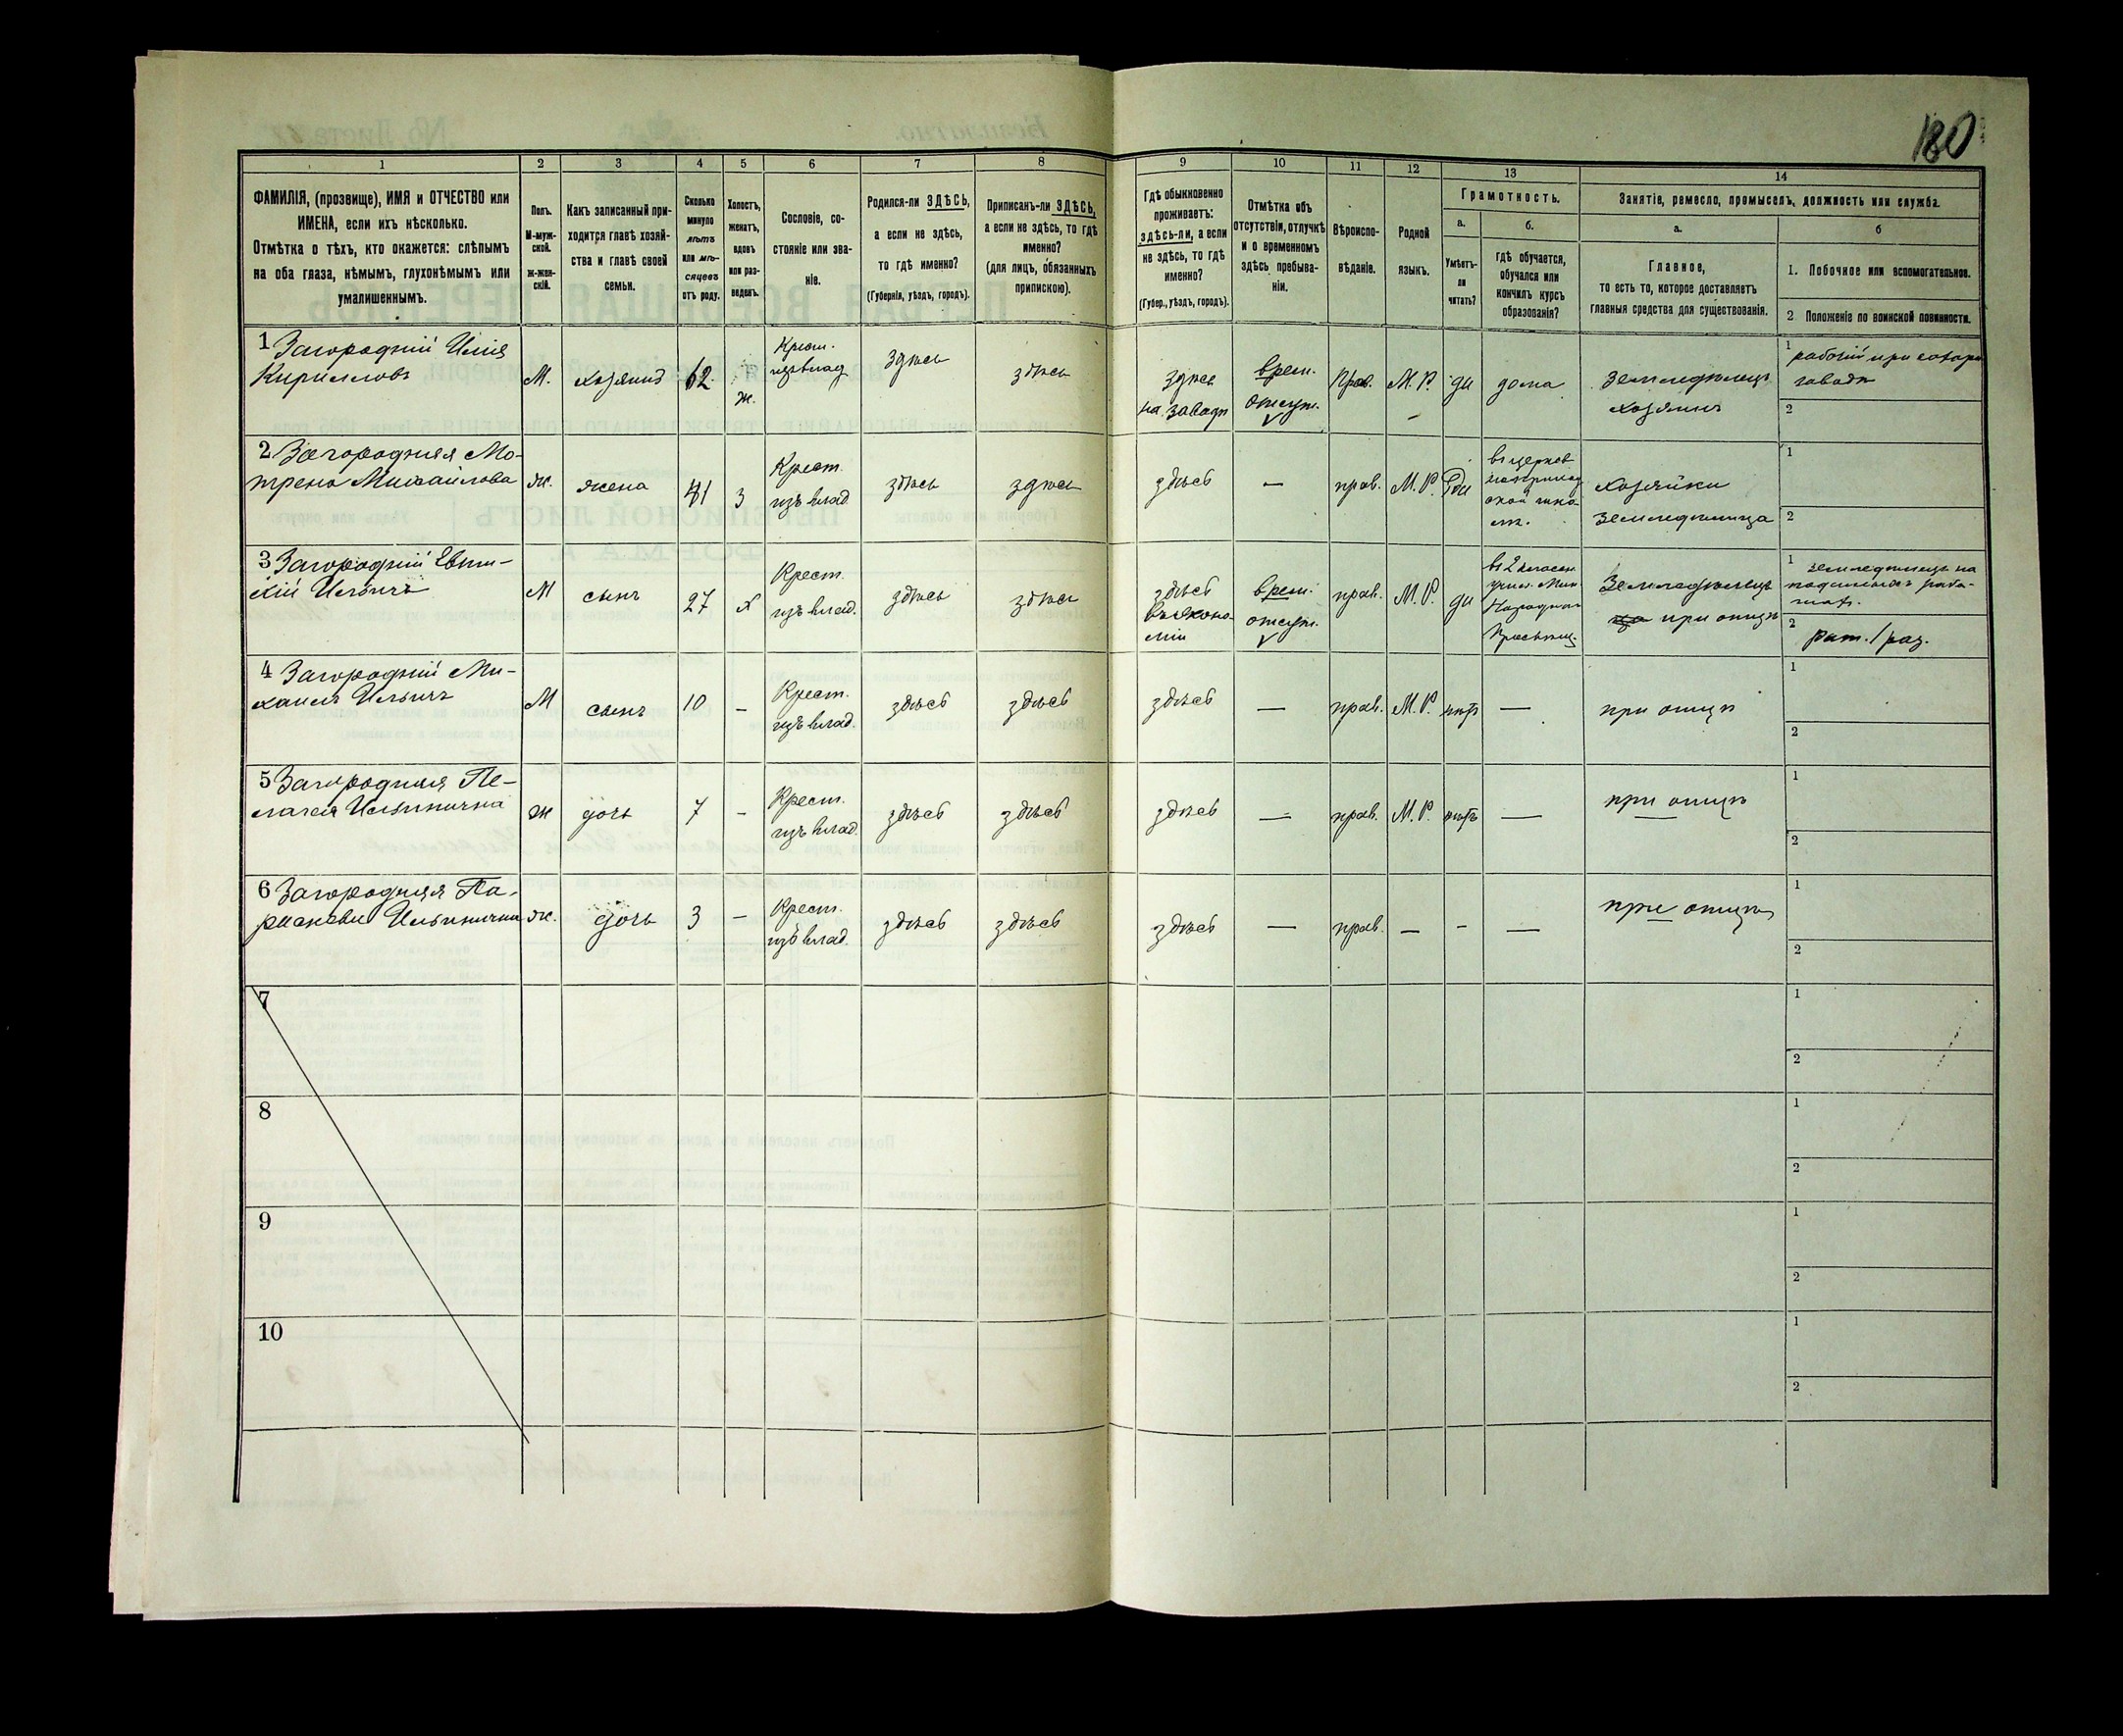 180
1 2 3 4 5 6 7 8 9 10 11 12 13 14
ФАМИЛІЯ, (прозвище), ИМЯ и ОТЧЕСТВО или
ИМЕНА, если ихъ нѣсколько.
Отмѣтка о тѣхъ, кто окажется: слѣпымъ
на оба глаза, нѣмымъ, глухонѣмымъ или
умалишеннымъ.
Полъ.
М-муж-
ской.
ж-жен-
скій.
Какъ записанный при-
ходится главѣ хозяй-
ства и главѣ своей
семьи.
Сколько
минуло
лѣтъ
или мѣ-
сяцевъ
отъ роду.
Холостъ,
женатъ,
вдовъ
или раз-
веденъ.
Сословіе, со-
стояніе или зва-
ніе.
Родился-ли ЗДѢСЬ,
а если не здѣсь,
то гдѣ именно?
(Губернія, уѣздъ, городъ).
Приписанъ-ли ЗДѢСЬ,
а если не здѣсь, то гдѣ
именно?
(для лицъ, обязанныхъ
припискою).
Гдѣ обыкновенно
проживаетъ:
здѣсь-ли, а если
не здѣсь, то гдѣ
именно?
(Губер., уѣздъ, городъ).
Отмѣтка объ
отсутствіи, отлучкѣ
и о временномъ
здѣсь пребыва-
ніи.
Вѣроиспо-
вѣданіе.
Родной
языкъ.
Грамотность.
а.
Умѣетъ-
ли
читать?
б.
гдѣ обучается,
обучался или
кончилъ курсъ
образованія?
Занятіе, ремесло, промыселъ, должность или служба.
а.
Главное,
то есть то, которое доставляетъ
главныя средства для существованія.
б
1. Побочное или вспомогательное.
2 Положеніе по воинской повинности.
1 Загородній Илія
Кирилловъ
М.
хозяинъ
62
ж.
Крест.
изъ влад
здѣсь
здѣсь
здѣсь
на заводѣ
врем.
отсут.
Прав.
М. Р.
да
дома
Земледѣлецъ
хозяинъ
1
рабочій при сахарн
заводѣ
2
2 Загородняя Мо-
трена Михайлова
ж.
жена
41
з
Крест.
изъ влад
здѣсь
здѣсь
здѣсь
—
прав.
М. Р.
да
въ церков
ской шко-
лѣ.
Хозяйка
земледѣлица
1
2
3 Загородній Евти-
хій Ильичъ
М
сынъ
27
х
Крест.
изъ влад.
здѣсь
здѣсь
здѣсь
въ эконо-
міи
врем.
отсут.
прав.
М. Р.
да
въ 2 классн.
учил. Мин.
Народнаго
Просвѣщ.
Земледѣлецъ
при отцѣ
1 земледѣлецъ на
поденныхъ рабо-
тахъ.
2
рат. 1 раз.
4 Загородній Ми-
хаилъ Ильичъ
М
сынъ
10
–
Крест.
изъ влад.
здѣсь
здѣсь
здѣсь
—
прав.
М. Р.
нѣтъ
—
при отцѣ
1
2
5 Загородняя Пе-
лагея Ильинична
ж
дочь
7
–
Крест.
изъ влад.
здѣсь
здѣсь
здѣсь
—
прав.
М. Р.
нѣтъ
—
при отцѣ
1
2
6 Загородняя Па-
раскева Ильинична
ж.
дочь
3
–
Крест.
изъ влад.
здѣсь
здѣсь
здѣсь
—
прав.
—
-
—
при отцѣ
1
2
7
1
2
8
1
2
9
1
2
10
1
2